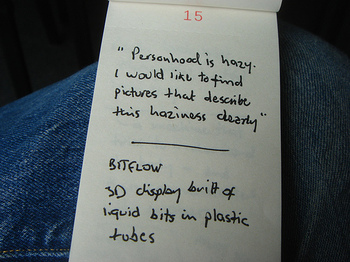 15
"Personhood is hazy.
I would like to find
pictures that describe
this haziness clearly"
BITFLOW
3D display built of
liquid bits in plastic
tubes